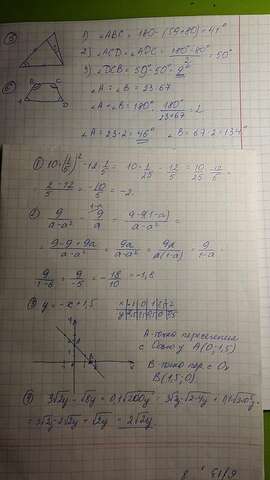 ⑤ 1) ∠ABC = 180-(59+80)=41°
2) ∠ACD = ∠ADC = (180°-80°)/2 = 50°
3) ∠DCB = 59°-50°=9°
⑥ ∠A : ∠B = 23:67
∠A = ∠B = 180° · 180°/(23+67) = 2
∠A = 23·2 = 46° ∠B = 67·2 = 134°
① 10·(1/5)² - 12·1/5 = 10·1/25 - 12/5 = 10/25 - 12/5 =
= (2-12)/5 = -10/5 = -2.
② 9/(a-a²) - 9/a = (9-9(1-a))/(a-a²) =
= (9-9+9a)/(a-a²) = 9a/(a-a²) = 9a/(a(1-a)) = 9/(1-a)
9/(1-6) = 9/-5 = -18/10 = -1,8
③ y = -x+1,5
А-точка пересечения
с Осью y A(0;1,5)
В-точка пер с Ox
B(1,5;0).
= 3√2y - 2√2y + √2y = 2√2y